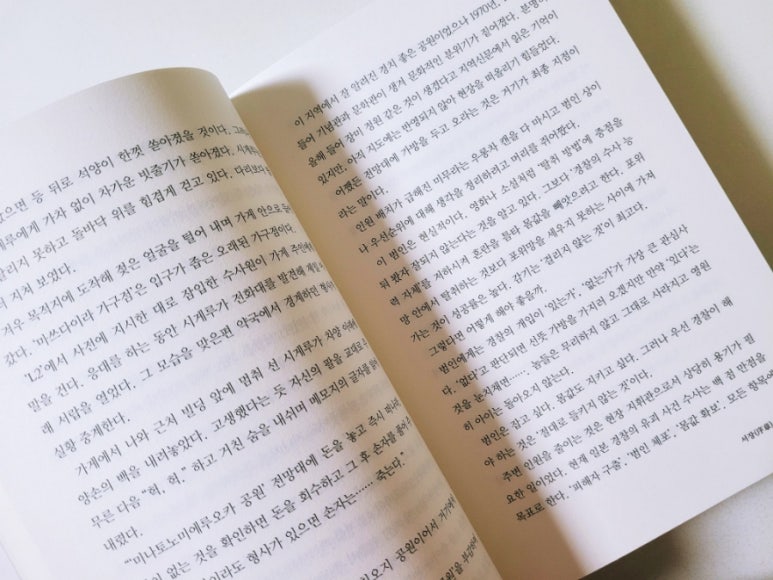 으면 등 뒤로 석양이 한껏 쏟아졌을 것이다.
루에게 가차 없이 차가운 빗줄기가 쏟아졌다.
리지 못하고 돌바닥 위를 힘겹게 걷고 있다. 다리보다
지쳐 보였다.
겨우 목적지에 도착해 젖은 얼굴을 털어 내며 가게 안으로
갔다. '미쓰다이라 가구점'은 입구가 좁은 오래된 가구점이다.
'L2'에서 사전에 지시한 대로 잠입한 수사원이 가게 주인
말을 건다. 응대를 하는 동안 시게루가 전화대를 발견해
래 서랍을 열었다. 그 모습을 맞은편 약국에서 경계하던
실황 중계한다.
가게에서 나와 근처 빌딩 앞에 멈춰 선 시게루가 차양
양손의 백을 내려놓았다. 고생했다는 듯 자신의 팔을 교대로
무른 다음 "헉, 헉." 하고 거친 숨을 내쉬며 메모지의 글자를
내렸다.
"'미나토노미에루오카 공원' 전망대에 돈을 놓고 즉시 떠나라.
이 없는 것을 확인하면 돈을 회수하고 그 후 손자를 풀어
이라도 형사가 있으면 손자는…… 죽는다."
오지 공원이어서 가구점에서
이 지역에서 잘 알려진 경치 좋은 공원이었으나 1970년,
들어 기념관과 문학관이 생겨 문화적인 분위기가 짙어졌다. 분명
올해 들어 장미 정원 같은 것이 생겼다고 지역신문에서 읽은 기억이
있지만, 아직 지도에는 반영되지 않아 현장을 떠올리기 힘들었다.
어쨌든 전망대에 가방을 두고, 오라는 것은 거기가 최종 지점이
라는 말이다.
인원 배치가 급해진 미무라는 우롱차 캔을 다 마시고 범인 상이
나 우선순위에 관해 생각을 정리하려고 머리를 쥐어짰다.
이 범인은 현실적이다. 영화나 소설처럼 '탈취 방법'에 중점을
둬 봤자 잘되지 않는다는 것을 알고 있다. 그보다 '경찰의 수사 능
력 자체'를 저하시켜 혼란을 틈타 몸값을 빼앗으려고 한다. 포위
망 안에서 탈취하는 것보다 포위망을 세우지 못하는 사이에 가져
가는 것이 성공률은 높다. 감기는 '걸리지 않는 것'이 최고다.
그렇다면 어떻게 해야 좋을까.
범인에게는 경찰의 개입이 '있는가', '없는가'가 가장 큰 관심사
다. '없다'고 판단되면 선뜻 가방을 가지러 오겠지만 만약 '있다'는
것을 눈치채면…… 놈들은 무리하지 않고 그대로 사라지고 영원
히 아이는 돌아오지 않는다.
범인은 잡고 싶다. 몸값도 지키고 싶다. 그러나 우선 경찰이 해
야 하는 것은 '절대로 들키지 않는 것'이다.
주변 인원을 줄이는 것은 현장 지휘관으로서 상당히 용기가 필
요한 일이었다. 현재 일본 경찰의 유괴 사건 수사는 백 점 만점을
목표로 한다. '피해자 구출', '범인 체포', '몸값 확보'. 모든 항목에